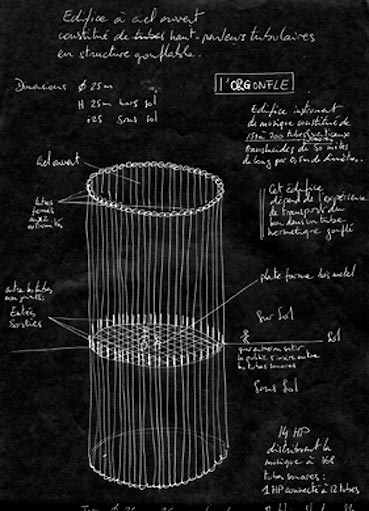 Edifice à ciel ouvert
constitué de tubes haut-parleurs tubulaires
en structure gonflable.
Dimensions Ø 25m
H 25m hors sol
25 sous sol
l'ORGONFLE
Edifice instrument
de musique constitué de
150 à 200 tubes verticaux
translucides de 50 mètres
de long par 0,50m de diamètre.
Cet édifice
dépend de l'expérience
de transport du
son dans un tube
hermétique gonflé
ciel ouvert
tubes
fermés
aux
extrémités
plate forme bois metal
entre les tubes
non jointifs
Entrées
Sorties
Sur Sol
Sol
pour entrer ou sortir
le public s'insère entre
les tubes sonores
Sous Sol
14 HP
distribuent la
musique à 168
tubes sonores :
1 HP connecté à 12 tubes